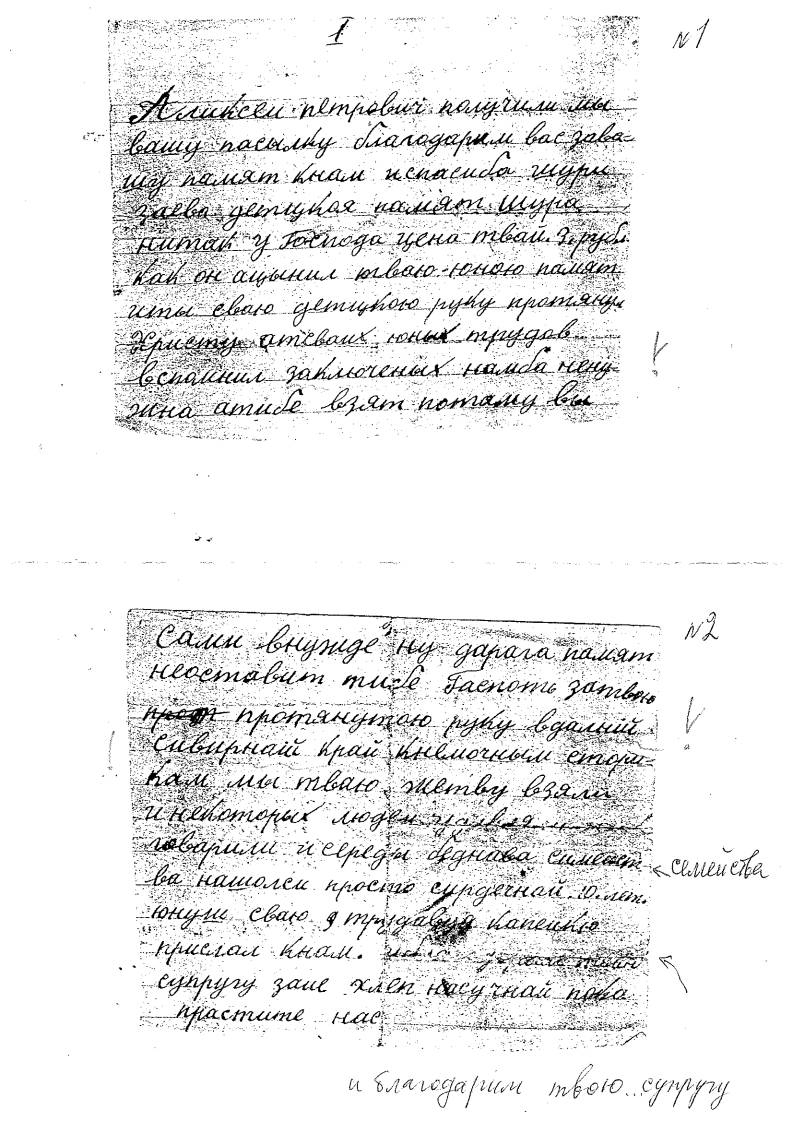 I
№1
Аликсеи петрович получили мы
вашу пасылку благодарим вас зава-
шу памят кнам испасиба шури
заева детцкая памят шура
нитак у Господа цена твай 3 рубл.
как он ацынил тваю юною памят
иты сваю детцкою руку протяну
Христу атсваих юных трудов
вспомнил заключеных намба нену
жна атибе взят потаму вы
№2
Сами внужде ну дарага памят
неоставит тибе Гаспоть затвою
протянутою руку вдалнй
Сивирнай край кнемочным стори-
кам мы тваю жетву взяли
и некоторых людем
говарили исереды беднава симейст
ва нашолси просто сурдечнай 10 лет.
← семейства
юнуш сваю трудавуя капейкю
прислал кнам.
супругу заие хлеп насучнай пока
прастите нас
и благодарим твою.. супругу